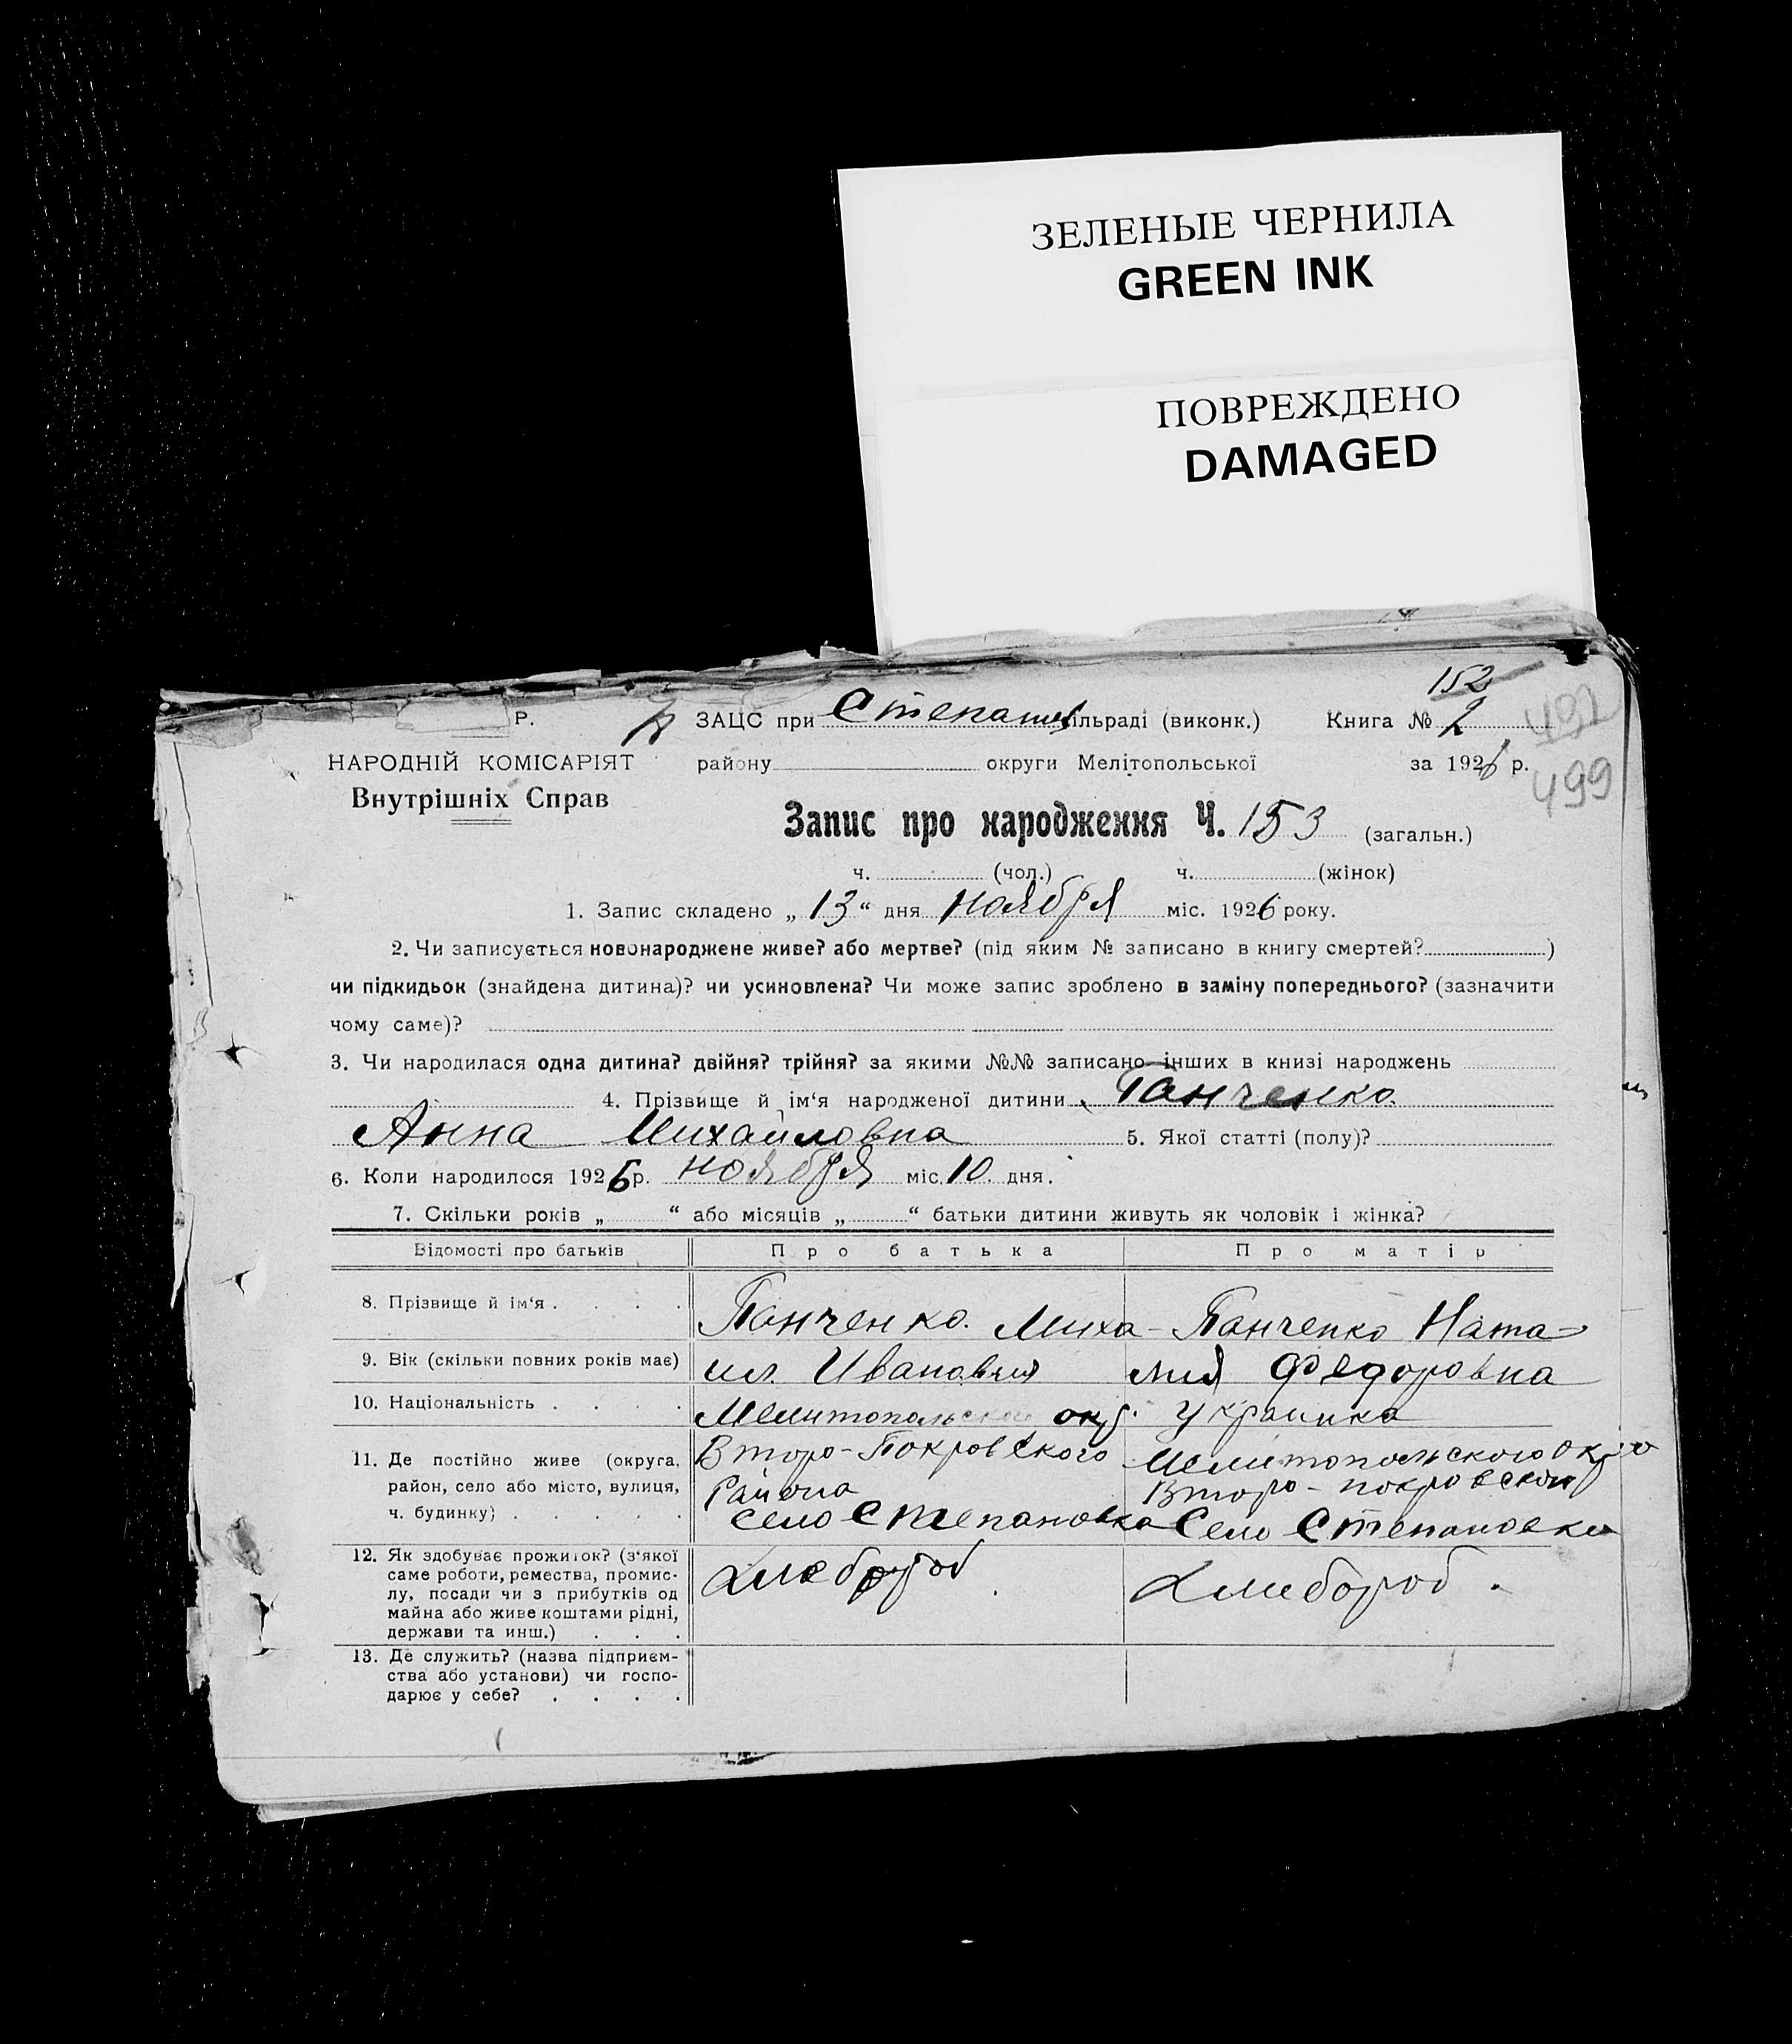 ЗЕЛЕНЫЕ ЧЕРНИЛА
GREEN INK
ПОВРЕЖДЕНО
DAMAGED
152
Р. ЗАЦС при Степанів ільраді (виконк.) Книга № 2
492
НАРОДНІЙ КОМІСАРІЯТ району округи Мелітопольської за 1926 р.
499
Внутрішніх Справ
Запис про народження Ч. 153 (загальн.)
ч. (чол.) ч. (жінок)
1. Запис складено „ 13 “ дня ноября міс. 1926 року.
2. Чи записується новонароджене живе? або мертве? (під яким № записано в книгу смертей? )
чи підкидьок (знайдена дитина)? чи усиновлена? Чи може запис зроблено в заміну попереднього? (зазначити
чому саме)?
3. Чи народилася одна дитина? двійня? трійня? за якими №№ записано інших в книзі народжень
4. Прізвище й ім‘я народженої дитини Панченко
Анна Михайловна 5. Якої статті (полу)?
6. Коли народилося 1926 р. ноября міс. 10 дня.
7. Скільки років „ “ або місяців „ “ батьки дитини живуть як чоловік і жінка?
Відомості про батьків Про батька Про матір
8. Прізвище й ім‘я . . . .
Панченко. Миха- Панченко Ната-
9. Вік (скільки повних років має) ил. Иванович лия Федоровна
10. Національність . . . . Мелитопольского окр. Украинка
Второ-Покровского Мелитопольского окр
11. Де постійно живе (округа, район, село або місто, вулиця, ч. будинку) . . . . .
Района Второ-покровской
село Степановка Село Степановка
12. Як здобуває прожиток? (з‘якої
саме роботи, ремества, промис-
лу, посади чи з прибутків од
майна або живе коштами рідні,
держави та инш.) . . .
хлебороб хлебороб.
13. Де служить? (назва підприєм-
ства або установи) чи госпо-
дарює у себе? . . . .